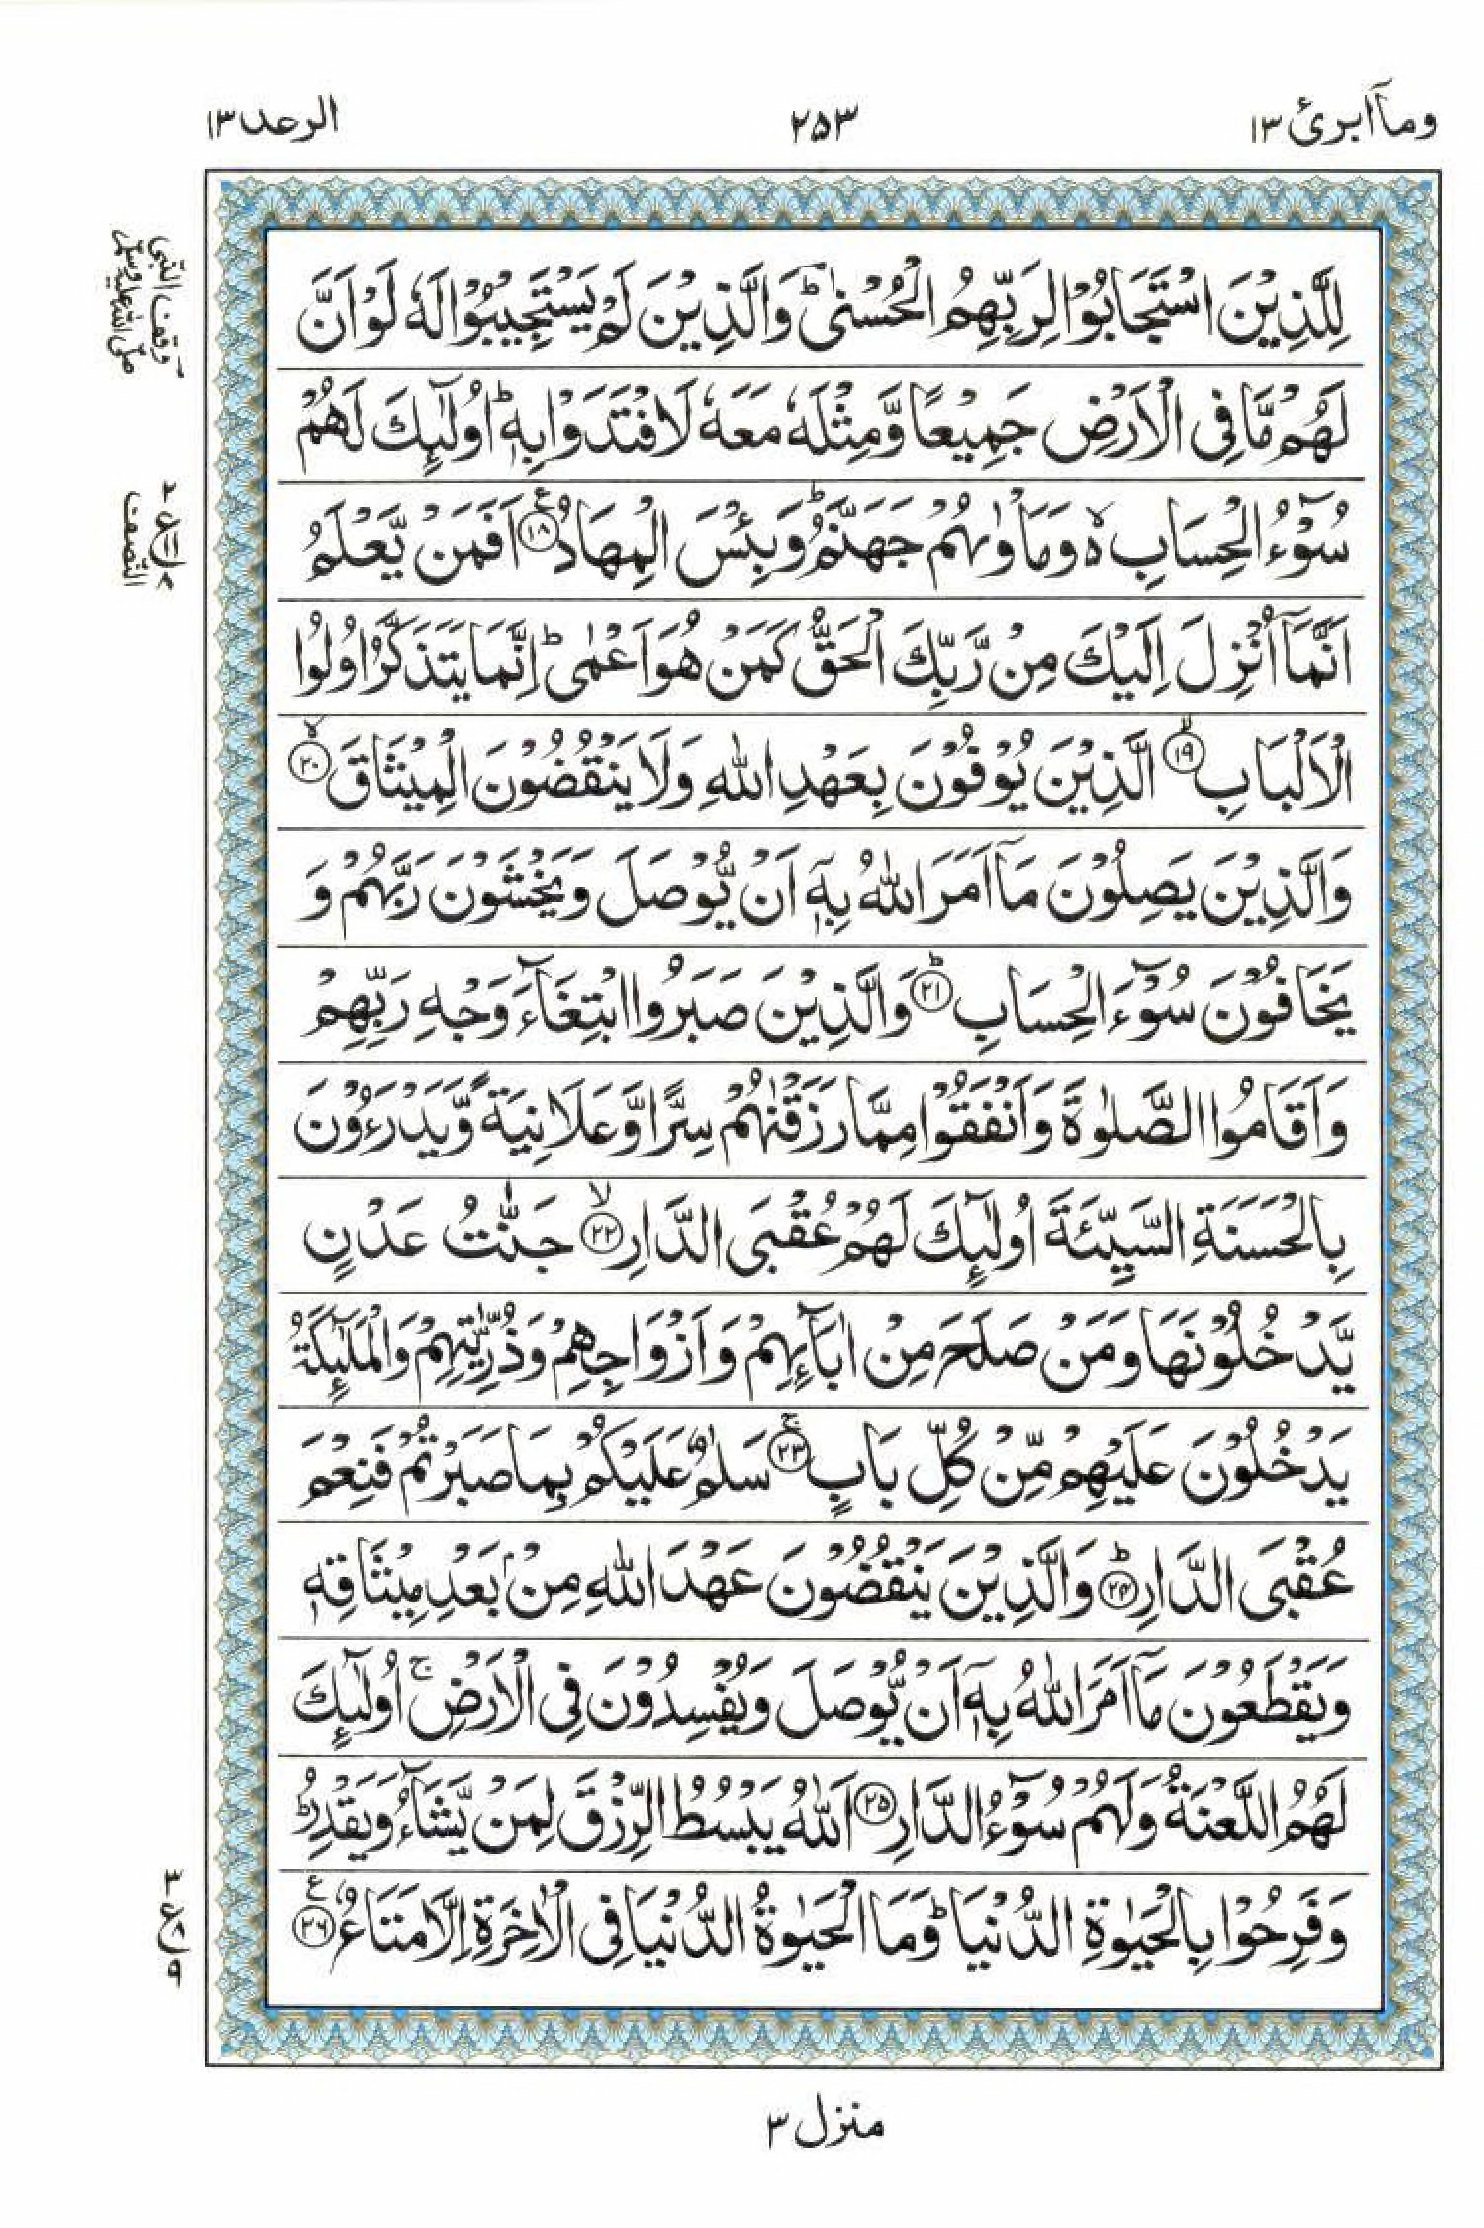 ومآ ابرئ ١٣
٢٥٣
الرعد ١٣
وقف النبی
صلی الله علیه وسلم
لِلَّذِیْنَ اسْتَجَابُوْا لِرَبِّهِمُ الْحُسْنٰیؕ وَالَّذِیْنَ لَمْ یَسْتَجِیْبُوْا لَهٗ لَوْ اَنَّ
لَهُمْ مَّا فِی الْاَرْضِ جَمِیْعًا وَّمِثْلَهٗ مَعَهٗ لَافْتَدَوْا بِهٖؕ اُولٰٓئِكَ لَهُمْ
سُوْٓءُ الْحِسَابِ ۙ۬ وَمَاْوٰىهُمْ جَهَنَّمُؕ وَبِئْسَ الْمِهَادُ ﴿١٨﴾ اَفَمَنْ یَّعْلَمُ
اَنَّمَاۤ اُنْزِلَ اِلَیْكَ مِنْ رَّبِّكَ الْحَقُّ كَمَنْ هُوَ اَعْمٰیؕ اِنَّمَا یَتَذَكَّرُ اُولُوا
الْاَلْبَابِ ﴿١٩﴾ۙ الَّذِیْنَ یُوْفُوْنَ بِعَهْدِ اللّٰهِ وَلَا یَنْقُضُوْنَ الْمِیْثَاقَ ﴿٢٠﴾ۙ
وَالَّذِیْنَ یَصِلُوْنَ مَاۤ اَمَرَ اللّٰهُ بِهٖۤ اَنْ یُّوْصَلَ وَیَخْشَوْنَ رَبَّهُمْ وَ
یَخَافُوْنَ سُوْٓءَ الْحِسَابِ ﴿٢١﴾ؕ وَالَّذِیْنَ صَبَرُوا ابْتِغَآءَ وَجْهِ رَبِّهِمْ
وَاَقَامُوا الصَّلٰوةَ وَاَنْفَقُوْا مِمَّا رَزَقْنٰهُمْ سِرًّا وَّعَلَانِیَةً وَّیَدْرَءُوْنَ
بِالْحَسَنَةِ السَّیِّئَةَ اُولٰٓئِكَ لَهُمْ عُقْبَی الدَّارِ ﴿٢٢﴾ۙ جَنّٰتُ عَدْنٍ
یَّدْخُلُوْنَهَا وَمَنْ صَلَحَ مِنْ اٰبَآئِهِمْ وَاَزْوَاجِهِمْ وَذُرِّیّٰتِهِمْ وَالْمَلٰٓئِكَةُ
یَدْخُلُوْنَ عَلَیْهِمْ مِّنْ كُلِّ بَابٍ ﴿٢٣﴾ۚ سَلٰمٌ عَلَیْكُمْ بِمَا صَبَرْتُمْ فَنِعْمَ
عُقْبَی الدَّارِ ﴿٢٤﴾ؕ وَالَّذِیْنَ یَنْقُضُوْنَ عَهْدَ اللّٰهِ مِنْۢ بَعْدِ مِیْثَاقِهٖ
وَیَقْطَعُوْنَ مَاۤ اَمَرَ اللّٰهُ بِهٖۤ اَنْ یُّوْصَلَ وَیُفْسِدُوْنَ فِی الْاَرْضِۚ اُولٰٓئِكَ
لَهُمُ اللَّعْنَةُ وَلَهُمْ سُوْٓءُ الدَّارِ ﴿٢٥﴾ اَللّٰهُ یَبْسُطُ الرِّزْقَ لِمَنْ یَّشَآءُ وَیَقْدِرُؕ
وَفَرِحُوْا بِالْحَیٰوةِ الدُّنْیَاؕ وَمَا الْحَیٰوةُ الدُّنْیَا فِی الْاٰخِرَةِ اِلَّا مَتَاعٌ ﴿٢٦﴾
٢
ع
١١
٨
النصف
٣
ع
٨
٩
منزل ٣